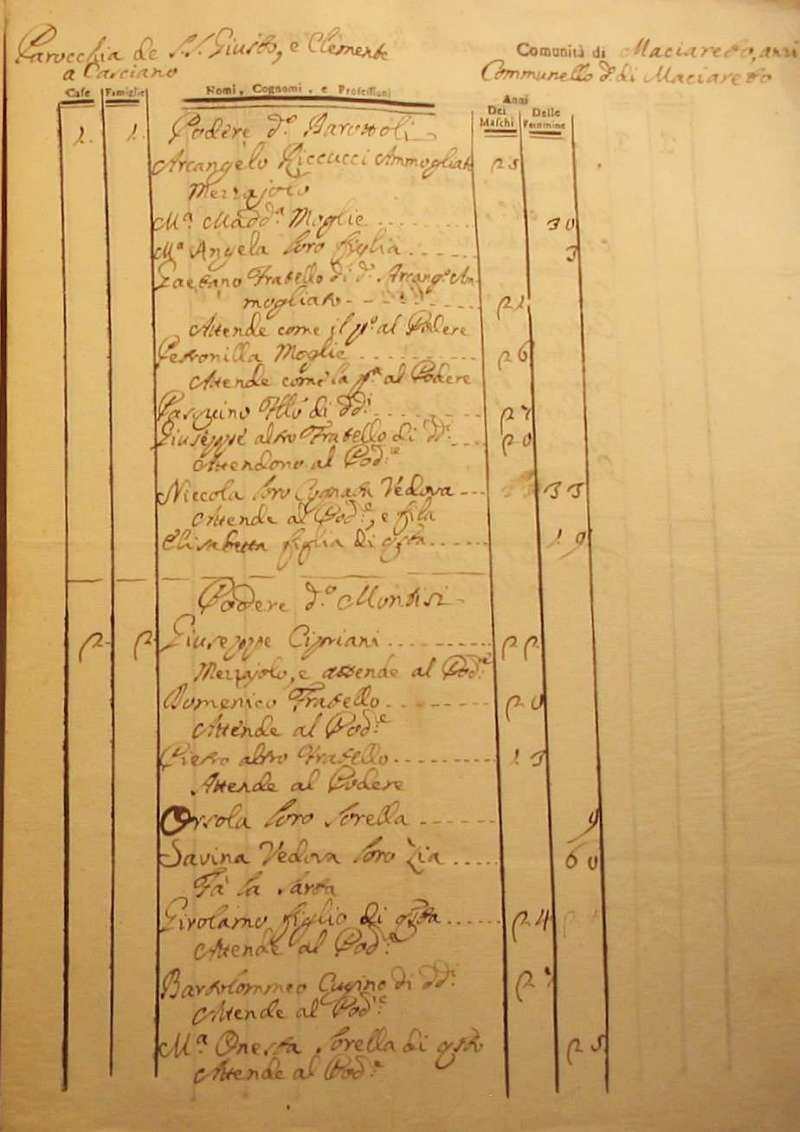 Parocchia de SS. Giusto, e Clemente
a Casciano
Comunità di Maciareto, anzi
Communello di Maciareto
Case Famiglie Nomi, Cognomi, e Professioni Anni
Dei Maschi Delle Femmine
1. 1. Podere d.º
Arcangelo Riccucci Ammogliato 25
M.ª Madd.ª Moglie 30
M.ª Angela loro figlia 3
Gaetano Fratello di d.º Arcang.º Am-
mogliato
Attende come il p.º al Podere
Petronilla Moglie 26
Attende come la p.ª al Podere
Pasquino di dd.i 27
Giuseppe altro Fratello di dd.i 20
Attendono al Pod.e
Niccola loro Vedova
Attende al Pod.e, e fila
Elisabetta figlia di qsta 19
Podere d.º Montisi
2 2 Giuseppe Cipriani 22
Mezzajolo, e attende al Pod.e
Domenico Fratello 20
Attende al Pod.e
Pietro altro Fratello
Attende al Podere
Orsola loro sorella 9
Savina Vedova loro Zia 60
Fa la sarta
Girolamo figlio di qsta 24
Attende al Pod.e
Bartolommeo Cugino di dd.i
Attende al Pod.e
M.ª Onesta sorella di qsto 25
Attende al Pod.e